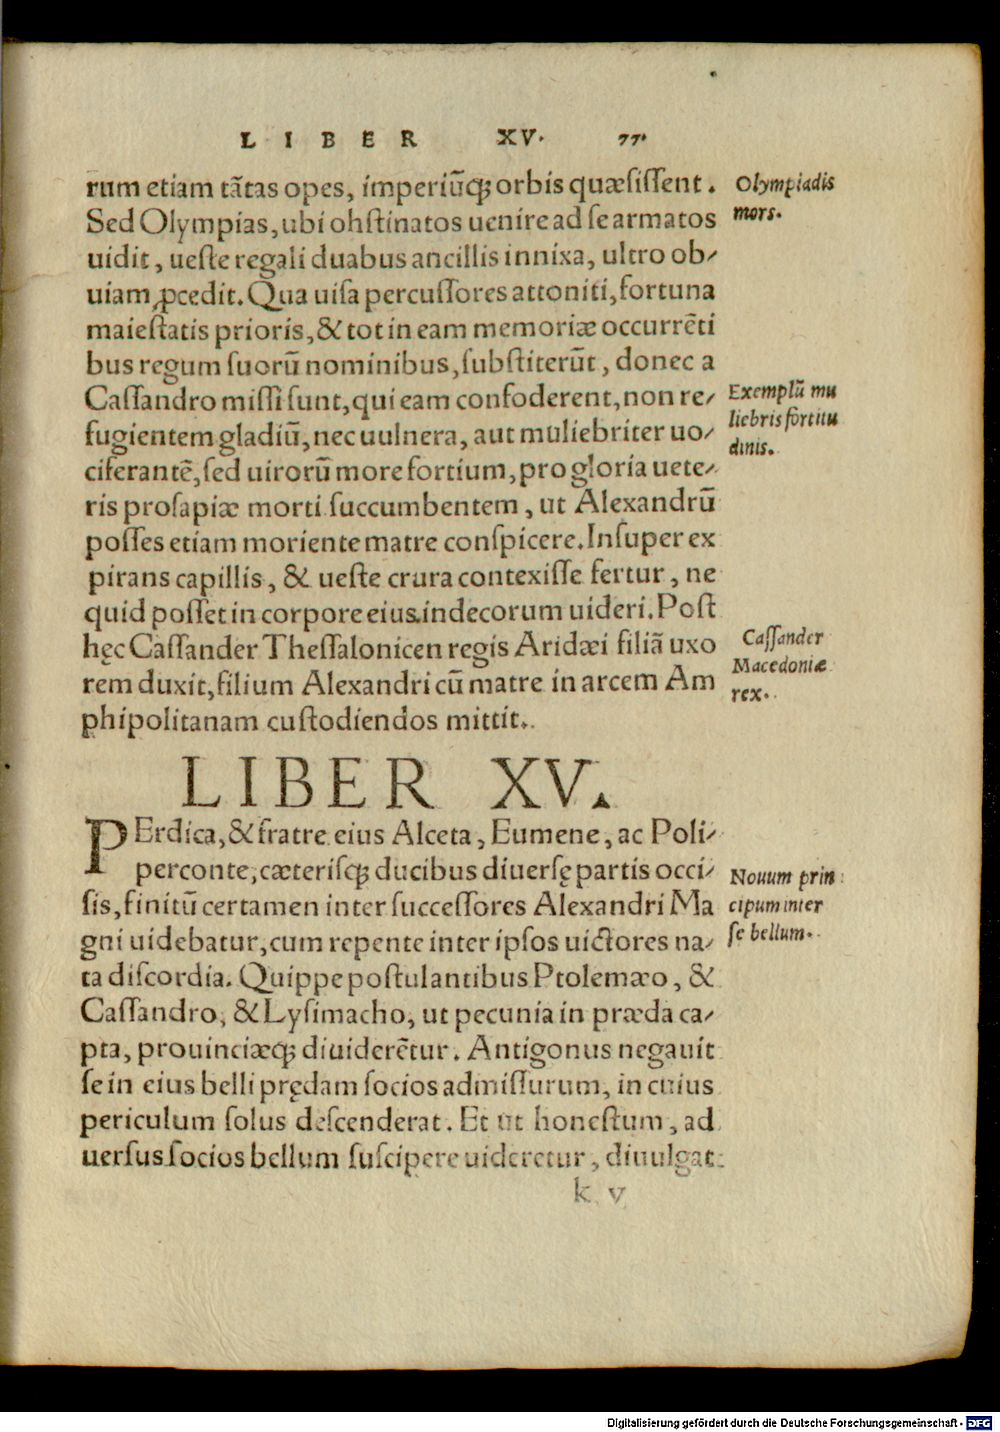 LIBER XV. 77.
rum etiam tãtas opes, imperiũq; orbis quæsissent.
Sed Olympias, ubi ohstinatos uenire ad se armatos
uidit, ueste regali duabus ancillis innixa, ultro ob-
uiam ꝓcedit. Qua uisa percussores attoniti, fortuna
maiestatis prioris, & tot in eam memoriæ occurrẽti
bus regum suorũ nominibus, substiterũt, donec a
Cassandro missi sunt, qui eam confoderent, non re-
fugientem gladiũ, nec uulnera, aut muliebriter uo-
ciferantẽ, sed uirorũ more fortium, pro gloria uete-
ris prosapiæ morti succumbentem, ut Alexandrũ
posses etiam moriente matre conspicere. Insuper ex
pirans capillis, & ueste crura contexisse fertur, ne
quid posset in corpore eius indecorum uideri. Post
hęc Cassander Thessalonicen regis Aridæi filiã uxo
rem duxit, filium Alexandri cũ matre in arcem Am
phipolitanam custodiendos mittit.
Olympiadis
mors.
Exemplũ mu
liebris fortitu
dinis.
Cassander
Macedoniæ
rex.
LIBER XV.
PErdica, & fratre eius Alceta, Eumene, ac Poli-
perconte, cæterisq; ducibus diuersę partis occi-
sis, finitũ certamen inter successores Alexandri Ma
gni uidebatur, cum repente inter ipsos uictores na-
ta discordia. Quippe postulantibus Ptolemæo, &
Cassandro, & Lysimacho, ut pecunia in præda ca-
pta, prouinciæq; diuiderẽtur. Antigonus negauit
se in eius belli prędam socios admissurum, in cuius
periculum solus descenderat. Et ut honestum, ad
uersus socios bellum suscipere uideretur, diuulgat
Nouum prin
cipum inter
se bellum.
k v
Digitalisierung gefördert durch die Deutsche Forschungsgemeinschaft - DFG